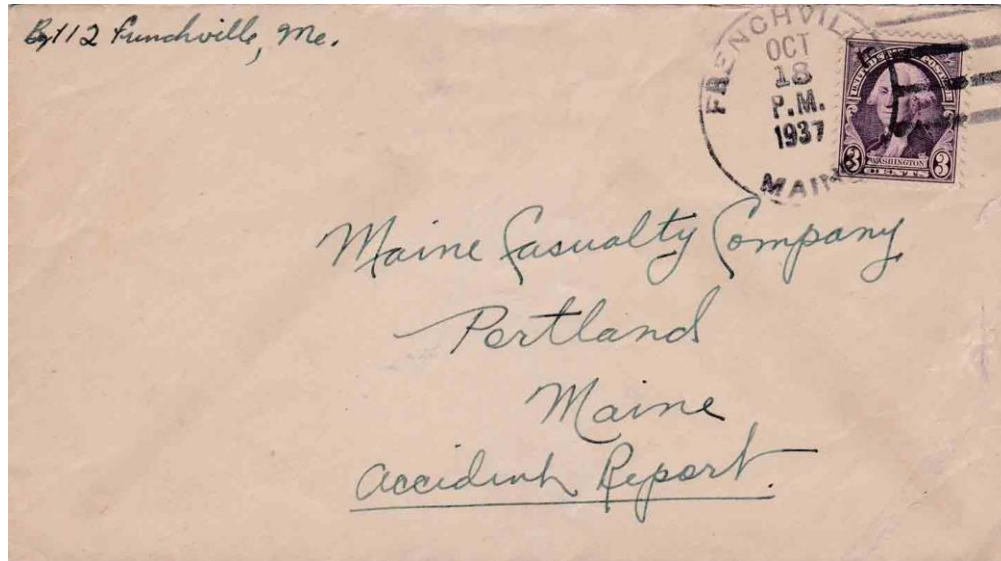 Bx 112 Frenchville, Me.
FRENCHVILLE
OCT
18
P.M.
1937
MAINE
UNITED STATES POSTAGE
3 WASHINGTON 3
CENTS
Maine Casualty Company,
Portland
Maine
Accident Report.